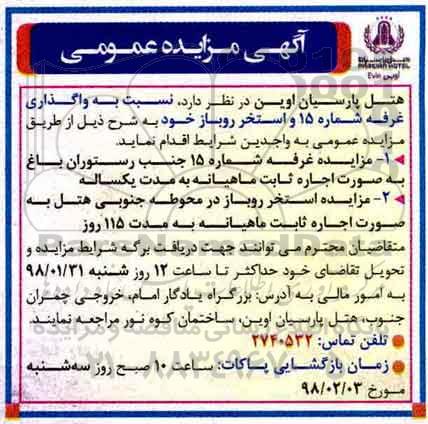 آگهی مزایده عمومی
PARSIAN HOTEL
Evin اوین
هتل پارسیان اوین در نظر دارد، نسبت به واگذاری
غرفه شماره ۱۵ و استخر روباز خود به شرح ذیل از طریق
مزایده عمومی به واجدین شرایط اقدام نماید.
۱- مزایده غرفه شماره ۱۵ جنب رستوران باغ
به صورت اجاره ثابت ماهیانه به مدت یکساله
۲- مزایده استخر روباز در محوطه جنوبی هتل به
صورت اجاره ثابت ماهیانه به مدت ۱۱۵ روز
متقاضیان محترم می توانند جهت دریافت برگه شرایط مزایده و
تحویل تقاضای خود حداکثر تا ساعت ۱۲ روز شنبه ۹۸/۰۱/۳۱
به امور مالی به آدرس: بزرگراه یادگار امام، خروجی چمران
جنوب، هتل پارسیان اوین، ساختمان کوه نور مراجعه نمایند.
تلفن تماس: ۲۷۴۰۵۳۲
زمان بازگشایی پاکات: ساعت ۱۰ صبح روز سه‌شنبه
مورخ ۹۸/۰۲/۰۳